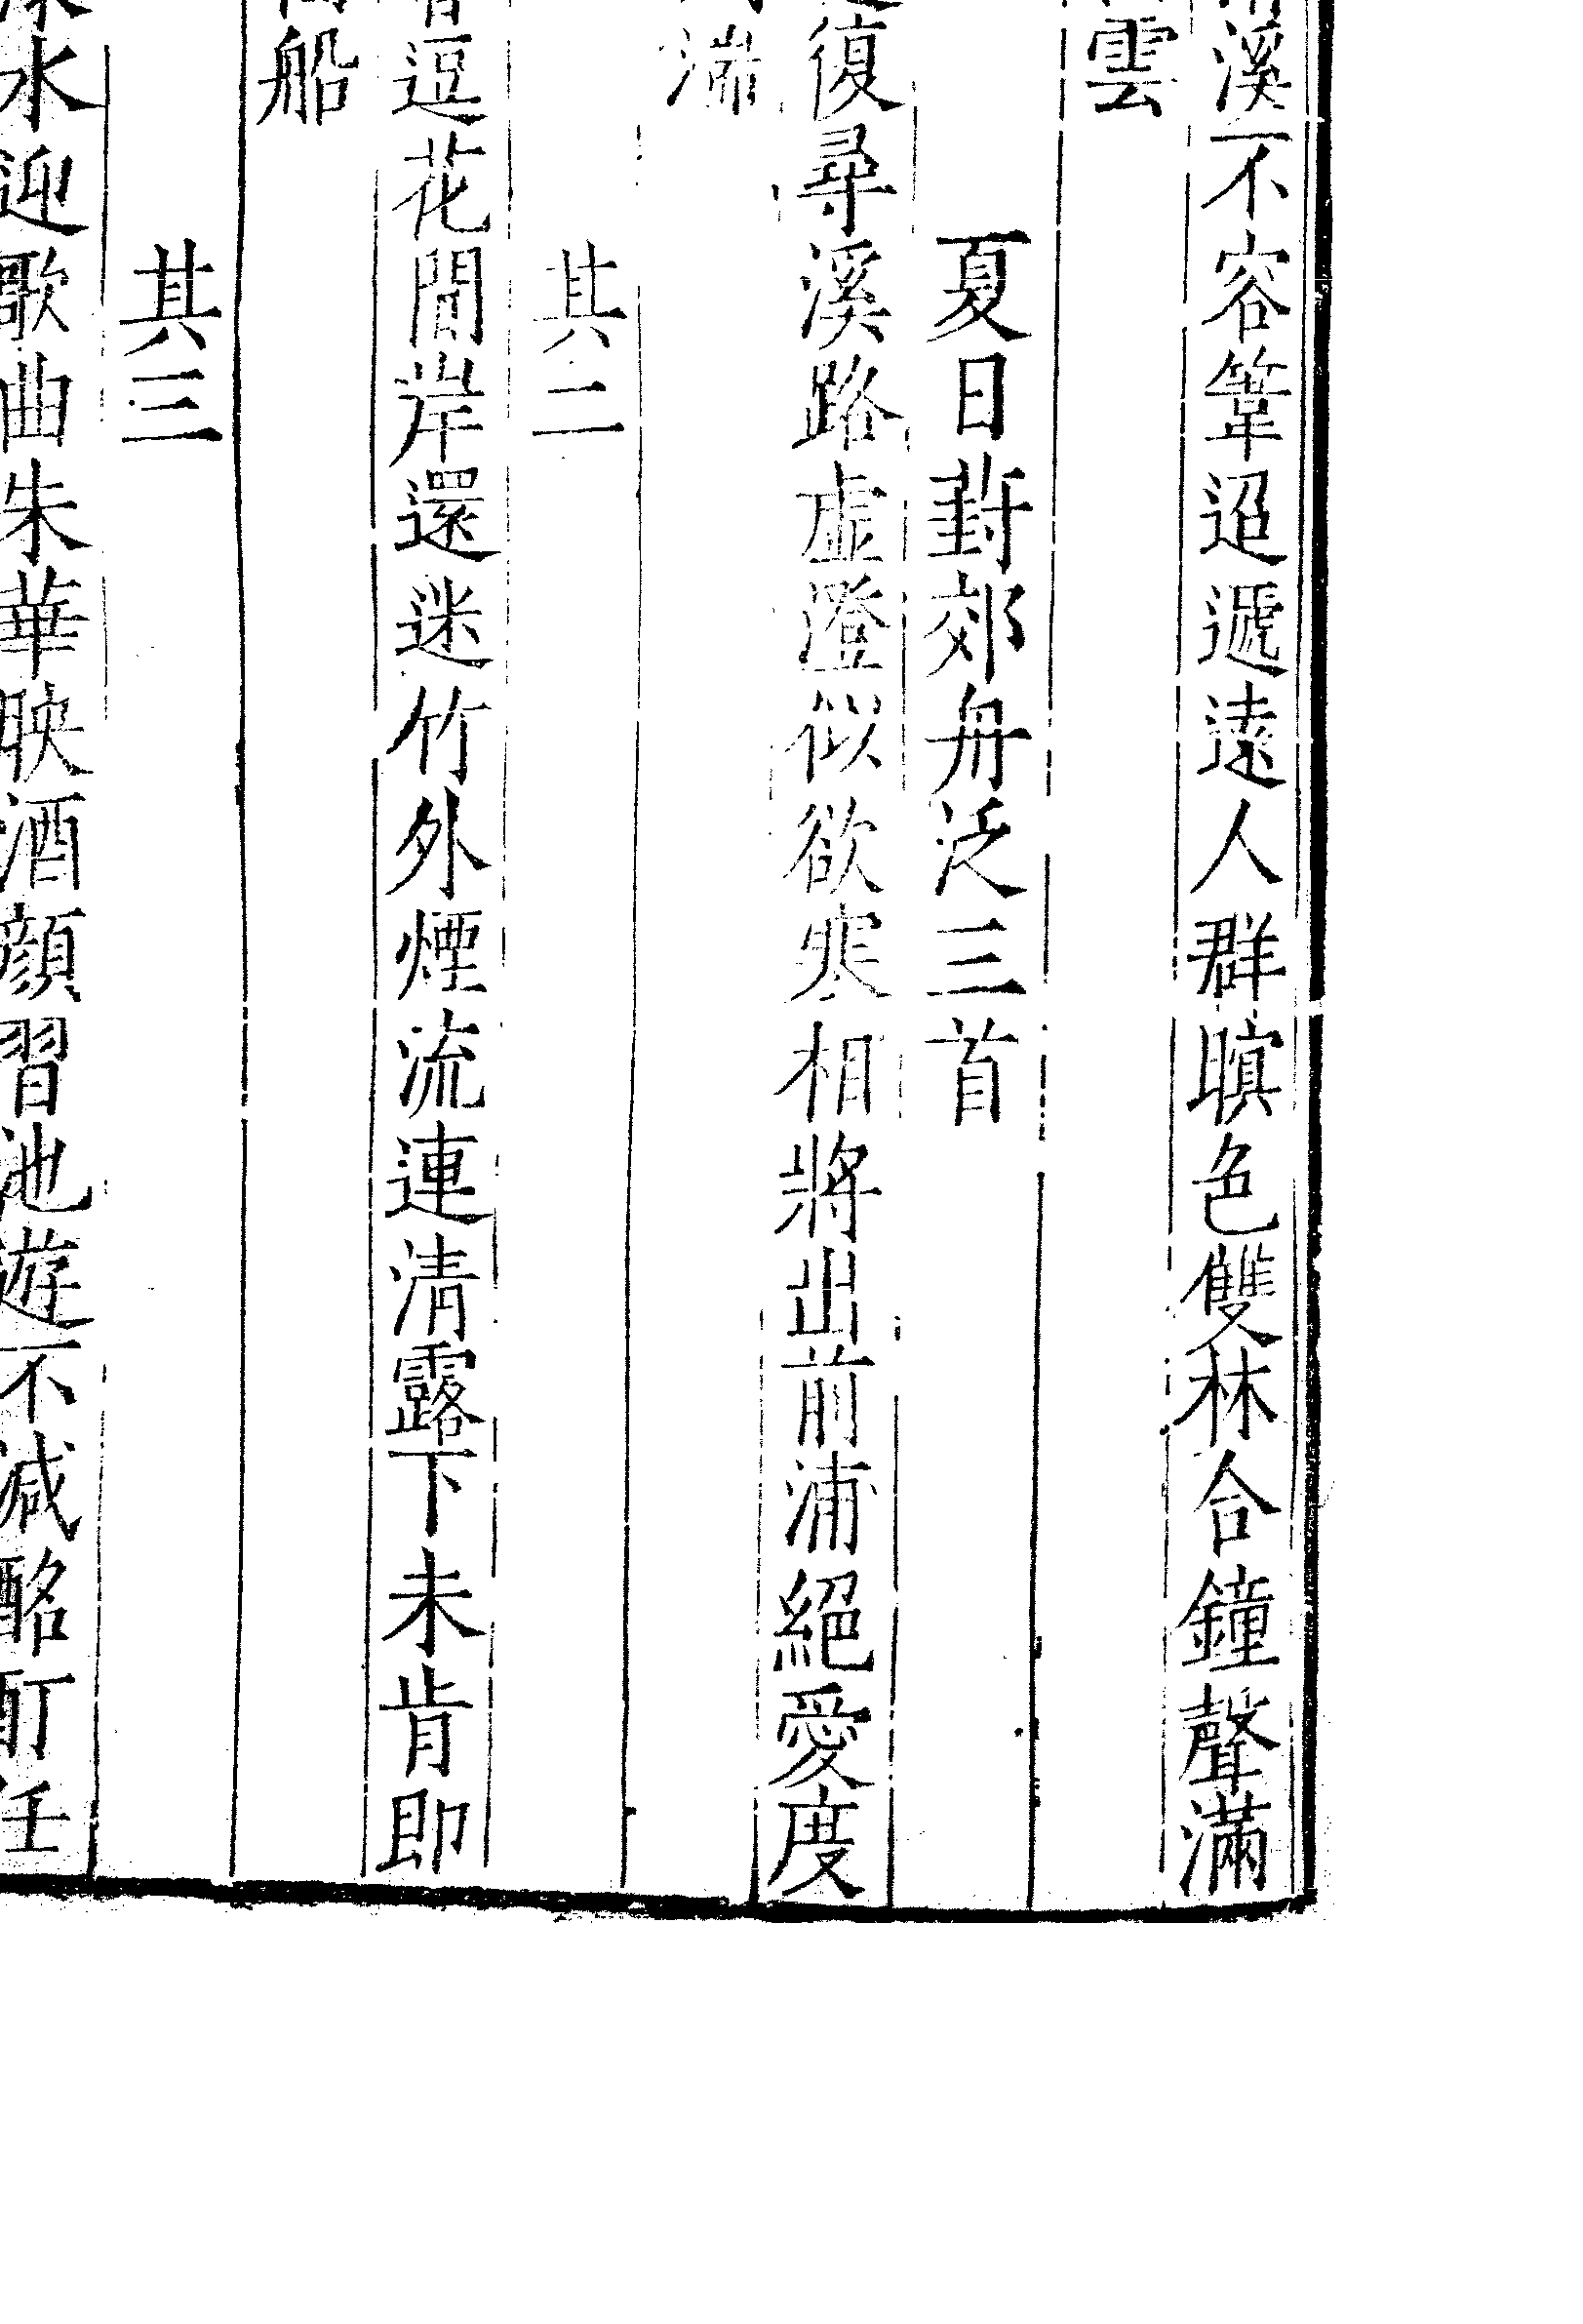 溪不容篿迢遞遠人群暝色雙林合鐘聲滿
雲
夏日對郊舟泛三首
復尋溪路虛澄似欲寒相將出前浦絕愛度
湍
其二
逗花間岸還迷竹外煙流連清露下未肯即
船
其三
水迎歌曲朱華映酒顔習池遊不減酩酊任